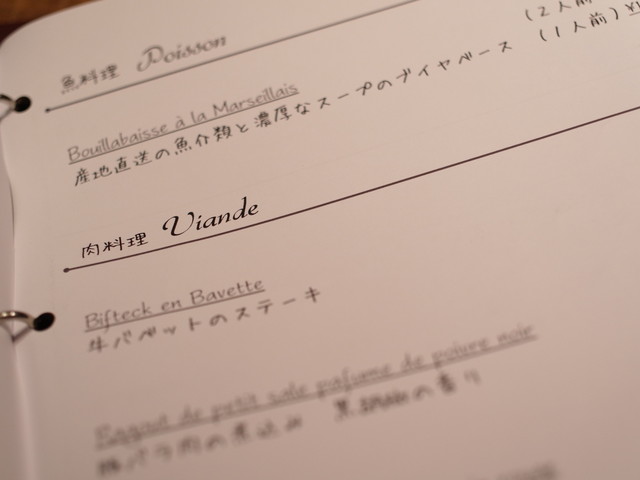 魚料理 Poisson
(2人前)
Bouillabaisse à la Marseillais
産地直送の魚介類と濃厚なスープのブイヤベース (1人前)
肉料理 Viande
Bifteck en Bavette
牛バベットのステーキ
Ragout de petit sale pafume de poivre noir
豚バラ肉の煮込み 黒胡椒の香り